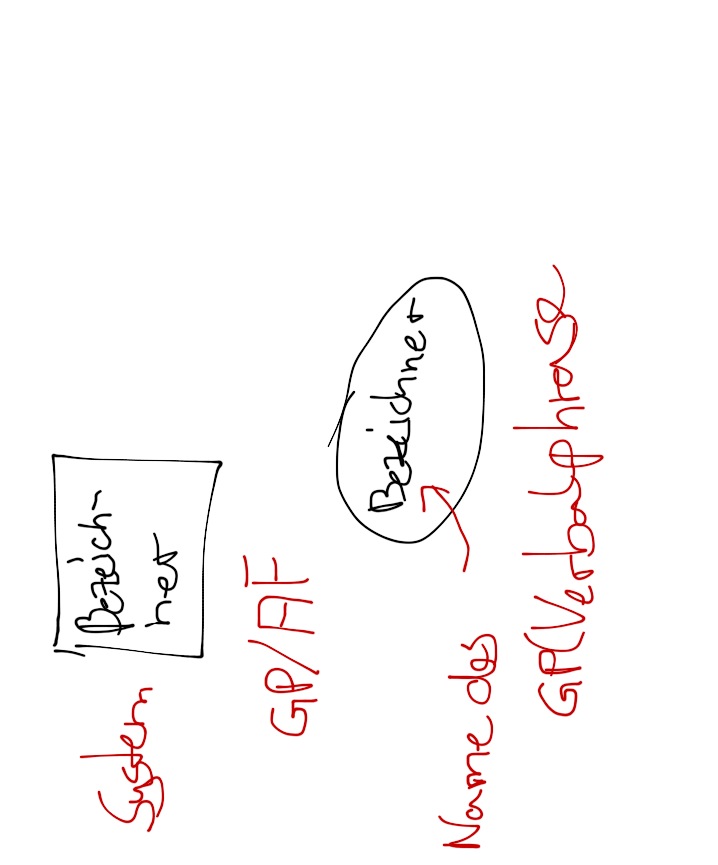 System
Bezeich-
ner
GP/AF
Bezeichner
Name des
GP(Verbalphrase